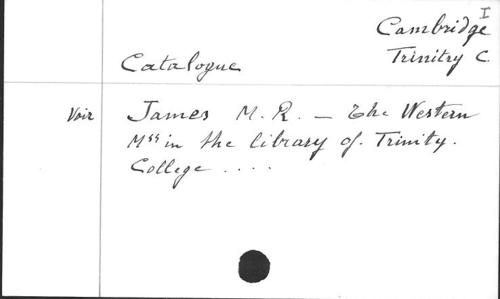 I
Cambridge
Trinitry C
Catalogue
Voir James M. R. – The Western
Mss in the library of. Trinity.
College ....